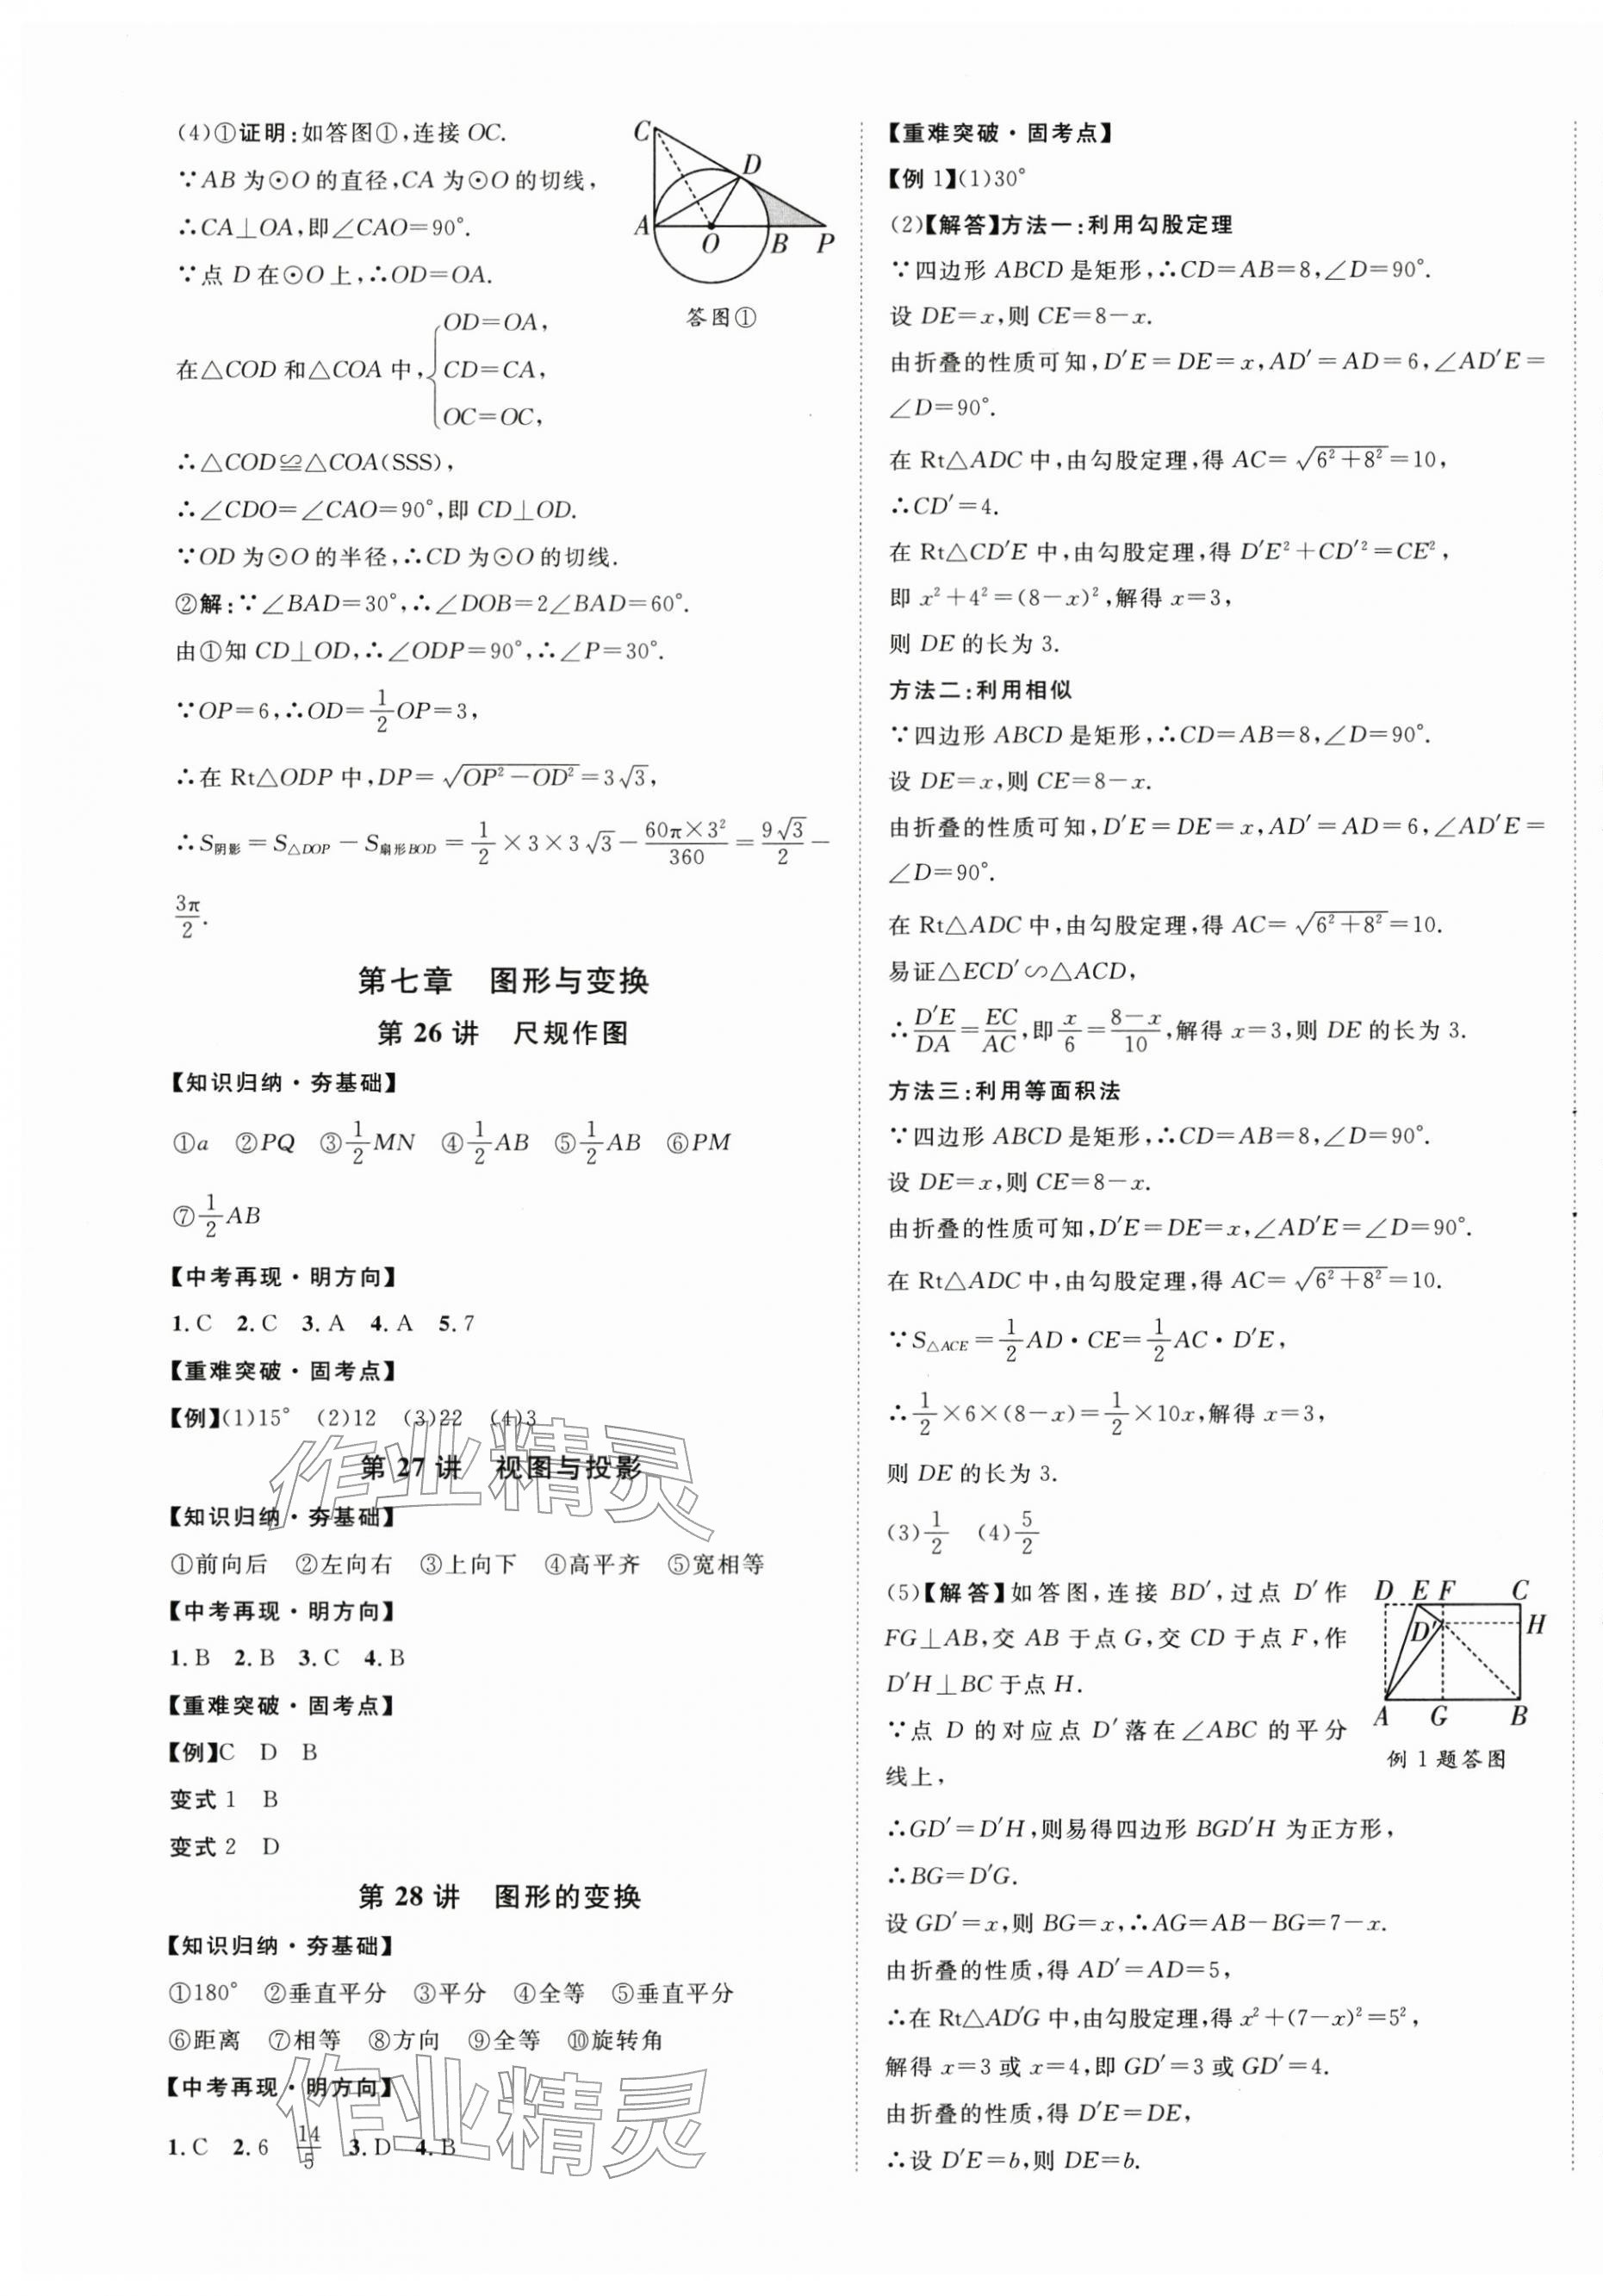 (4)①证明:如答图①,连接 OC.
∵AB 为⊙O 的直径,CA 为⊙O 的切线,
∴CA⊥OA,即∠CAO=90°.
∵点 D 在⊙O 上,∴OD=OA.
在△COD 和△COA 中,{OD=OA,
CD=CA,
OC=OC,
∴△COD≌△COA(SSS),
∴∠CDO=∠CAO=90°,即 CD⊥OD.
∵OD 为⊙O 的半径,∴CD 为⊙O 的切线.
②解:∵∠BAD=30°,∴∠DOB=2∠BAD=60°.
由①知 CD⊥OD,∴∠ODP=90°,∴∠P=30°.
∵OP=6,∴OD=1/2 OP=3,
∴在 Rt△ODP 中,DP=√(OP²-OD²)=3√3,
∴S阴影=S△DOP-S扇形BOD=1/2×3×3√3-60π×3²/360=9√3/2-
3π/2.
C
D
A
O
B
P
答图①
第七章 图形与变换
第 26 讲 尺规作图
【知识归纳·夯基础】
①a ②PQ ③1/2 MN ④1/2 AB ⑤1/2 AB ⑥PM
⑦1/2 AB
【中考再现·明方向】
1.C 2.C 3.A 4.A 5.7
【重难突破·固考点】
【例】(1)15° (2)12 (3)22 (4)3
第 27 讲 视图与投影
【知识归纳·夯基础】
①前向后 ②左向右 ③上向下 ④高平齐 ⑤宽相等
【中考再现·明方向】
1.B 2.B 3.C 4.B
【重难突破·固考点】
【例】C D B
变式 1 B
变式 2 D
第 28 讲 图形的变换
【知识归纳·夯基础】
①180° ②垂直平分 ③平分 ④全等 ⑤垂直平分
⑥距离 ⑦相等 ⑧方向 ⑨全等 ⑩旋转角
【中考再现·明方向】
1.C 2.6 14/5 3.D 4.B
作业精灵
作业精灵
【重难突破·固考点】
【例 1】(1)30°
(2)【解答】方法一:利用勾股定理
∵四边形 ABCD 是矩形,∴CD=AB=8,∠D=90°.
设 DE=x,则 CE=8-x.
由折叠的性质可知,D′E=DE=x,AD′=AD=6,∠AD′E=
∠D=90°.
在 Rt△ADC 中,由勾股定理,得 AC=√(6²+8²)=10,
∴CD′=4.
在 Rt△CD′E 中,由勾股定理,得 D′E²+CD′²=CE²,
即 x²+4²=(8-x)²,解得 x=3,
则 DE 的长为 3.
方法二:利用相似
∵四边形 ABCD 是矩形,∴CD=AB=8,∠D=90°.
设 DE=x,则 CE=8-x.
由折叠的性质可知,D′E=DE=x,AD′=AD=6,∠AD′E=
∠D=90°.
在 Rt△ADC 中,由勾股定理,得 AC=√(6²+8²)=10.
易证△ECD′∽△ACD,
∴D′E/DA=EC/AC,即x/6=(8-x)/10,解得 x=3,则 DE 的长为 3.
方法三:利用等面积法
∵四边形 ABCD 是矩形,∴CD=AB=8,∠D=90°.
设 DE=x,则 CE=8-x.
由折叠的性质可知,D′E=DE=x,∠AD′E=∠D=90°.
在 Rt△ADC 中,由勾股定理,得 AC=√(6²+8²)=10.
∵S△ACE=1/2 AD·CE=1/2 AC·D′E,
∴1/2×6×(8-x)=1/2×10x,解得 x=3,
则 DE 的长为 3.
(3)1/2 (4)5/2
(5)【解答】如答图,连接 BD′,过点 D′作
FG⊥AB,交 AB 于点 G,交 CD 于点 F,作
D′H⊥BC 于点 H.
∵点 D 的对应点 D′落在∠ABC 的平分
线上,
D E F C
D′ H
A G B
例 1 题答图
∴GD′=D′H,则易得四边形 BGD′H 为正方形,
∴BG=D′G.
设 GD′=x,则 BG=x,∴AG=AB-BG=7-x.
由折叠的性质,得 AD′=AD=5,
∴在 Rt△AD′G 中,由勾股定理,得 x²+(7-x)²=5²,
解得 x=3 或 x=4,即 GD′=3 或 GD′=4.
由折叠的性质,得 D′E=DE,
∴设 D′E=b,则 DE=b.